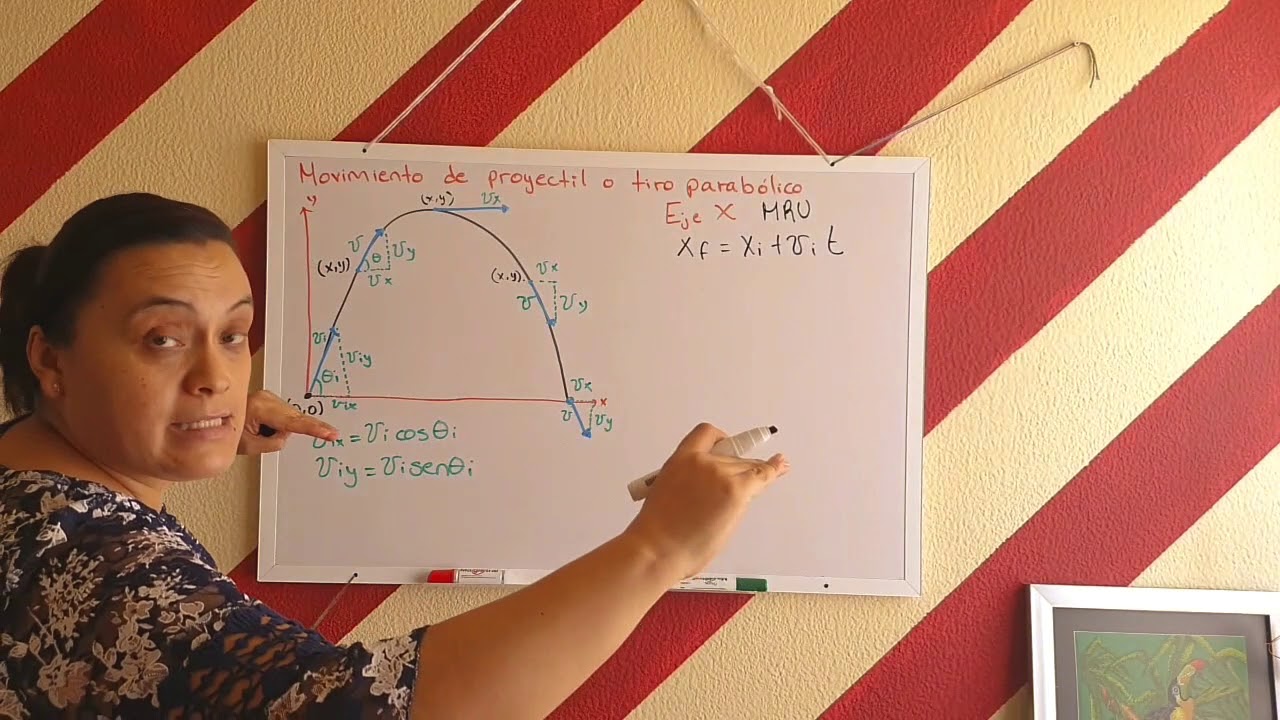 Movimiento de proyectil o tiro parabólico
Eje X MRU
xf = xi + vi t
y
(x,y) vx
v θ vy
(x,y) vx
(x,y) vx
v vy
vi θi viy
vix
vx
x
v vy
vix = vi cosθi
viy = vi senθi